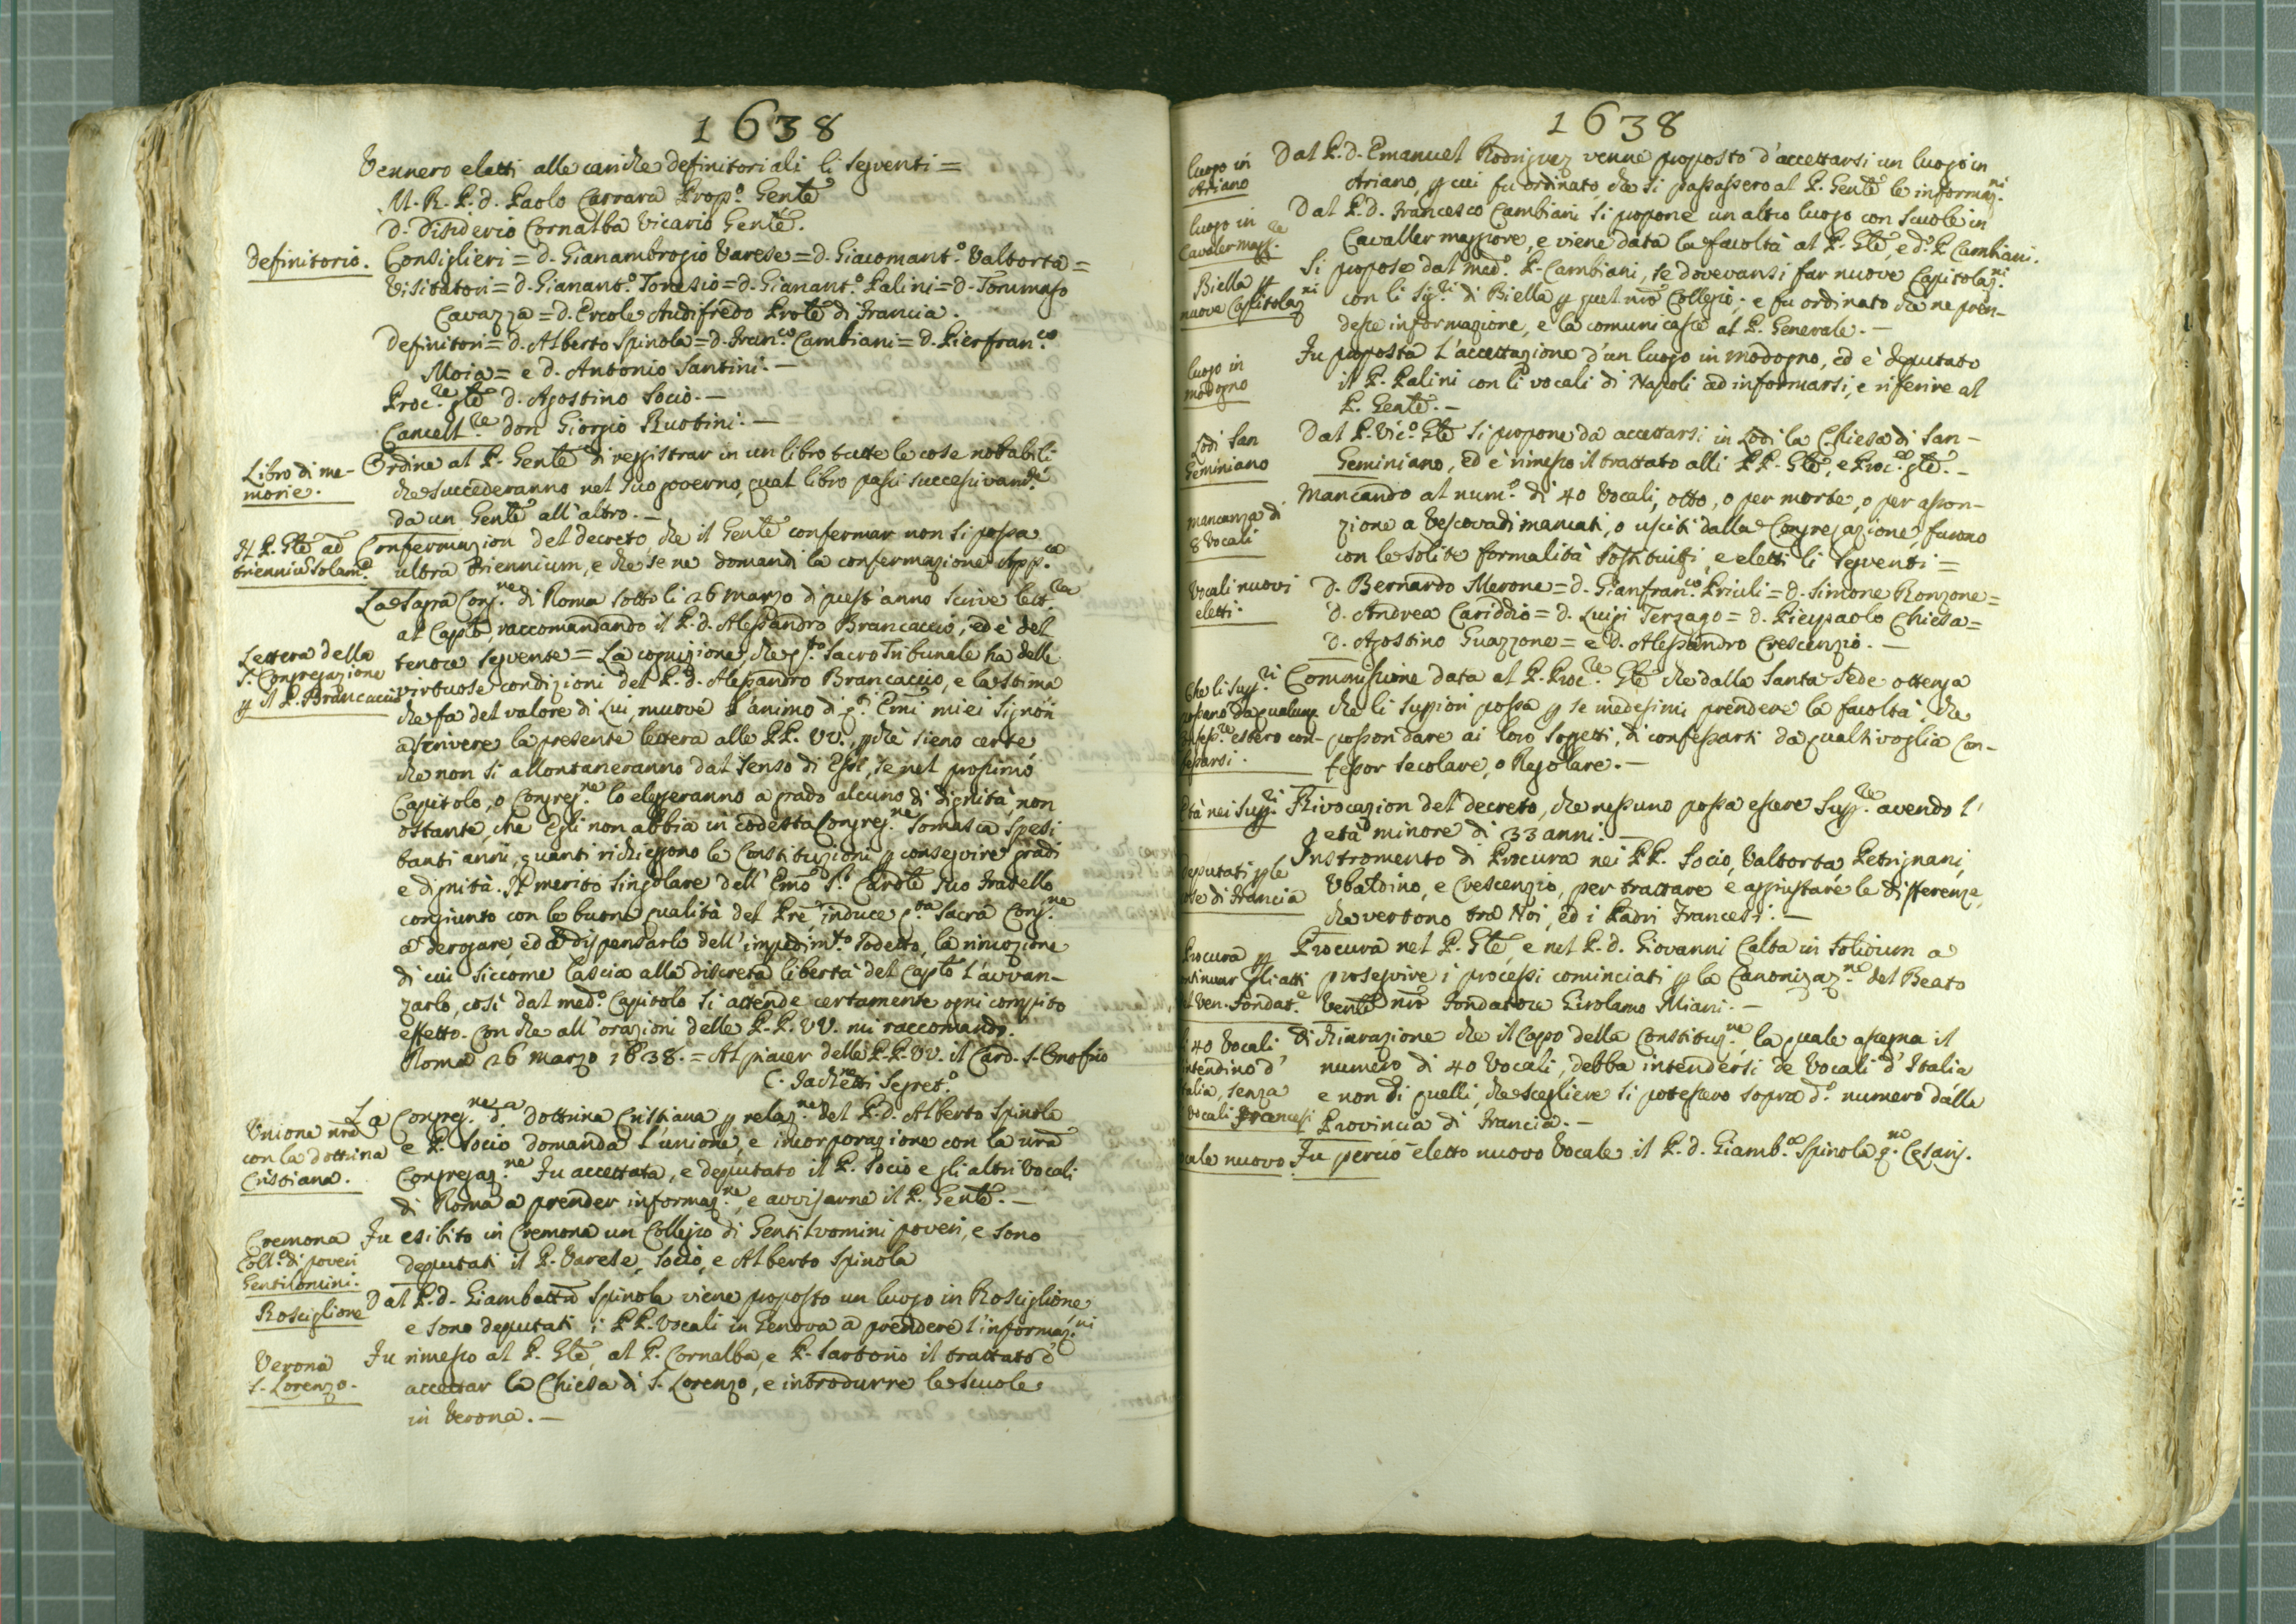 1638
Vennero eletti alle cariche definitoriali li seguenti =
M. R. P. d. Paolo Carrara Prop.º Genle
D. Disiderio Cornalba Vicario Genle.
Definitorio.
Consiglieri = d. Gianambrogio Varese = d. Giacomant.º Valtorta =
Visitatori = d. Gianant.º Torresio = d. Gianant.º Palini = d. Tommaso
Cavazza = d. Ercole Audifredo Prole di Francia.
Definitori = d. Alberto Spinola = d. Fran.co Cambiani = d. Pierfran.co
Moia = e d. Antonio Santini. —
Proc.re gle d. Agostino Socio. —
Cancell.re don Giorgio Ruobini. —
Libro di me-
morie.
Ordine al P. Genle di reggistrar in un libro tutte le cose notabili
che succederanno nel suo governo, qual libro passi successivam.te
da un Genle all'altro. —
Il P. Gle ad
trienniũ solam.e
Confermazion del decreto che il Genle confermar non si possa
ultra triennium, e che se ne domandi la confermazione App.ca
La Sagra Cong.ne di Roma sotto li 26 marzo di quest'anno scrive lett.ra
al Caplo, raccomandando il P. d. Alessandro Brancaccio, ed è del
Lettera della
S. Congregazione
p il P. Brancaccio
tenore seguente = La cognizione, che q.to Sacro Tribunale ha delle
virtuose condizioni del P. d. Alessandro Brancaccio, e la stima
che fa del valore di Lui, muove l'animo di q.ti Emi miei Signori
a scrivere la presente lettera alle PP. VV., pchè sieno certe
che non si allontaneranno dal senso di Esse, se nel prossimo
Capitolo, o Congreg.ne lo eleggeranno a grado alcuno di dignità, non
ostante, che Egli non abbia in codetta Congreg.ne Somasca spesi
tanti anni, quanti richieggono le Constituzioni p conseguire gradi
e dignità. Il merito singolare dell'Emo S.r Cardle suo Fratello
congiunto con le buone qualità del Pre, induce q.ta Sacra Cong.ne
a derogare, ed a dispensarlo dell'impedim.to sodetto, la rimozione
di cui siccome lascia alla discreta libertà del Caplo l'avvan-
zarlo, così dal med.º Capitolo si attende certamente ogni compito
effetto. Con che all'orazioni delle P.P. VV. mi raccomando.
Roma 26 marzo 1638. = Al piacer delle P.P. VV. il Card. S. Onofrio
C. Fachenetti Segret.º
Unione nrã
con la dottrina
Cristiana.
La Congreg.ne d.a dottrina Cristiana p relaz.ne del P. d. Alberto Spinola
e P. Socio domanda l'unione, e incorporazione con la nrã
Congregaz.ne Fu accettata, e deputato il P. Socio e gli altri Vocali
di Roma a prender informaz.ne, e avvisarne il P. Genle. —
Cremona
Coll.º di poveri
Gentilomini.
Fu esibito in Cremona un Collegio di Gentiluomini poveri, e sono
deputati il P. Varese, Socio, e Alberto Spinola
Rosciglione
Dal P. d. Giambattã Spinola viene proposto un luogo in Rosciglione
e sono deputati i PP. Vocali in Genova a prendere l'informaz.ni
Verona
S. Lorenzo.
Fu rimesso al P. Gle, al P. Cornalba, e P. Sartorio il trattato d'
accettar la Chiesa di S. Lorenzo, e introdurre le scuole
in Verona. —
1638
luogo in
Ariano
Dal P. d. Emanuel Rodriguez venne proposto d'accettarsi un luogo in
Ariano, p cui fu ordinato, che si passassero al P. Genle le informaz.ni
luogo in
Cavalermagg.re
Dal P. d. Francesco Cambiani si propone un altro luogo con scuole in
Cavaller maggiore, e viene data la facoltà al P. Gle, e d.º P. Cambiani.
Biella p
nuove Capitolaz.ni
Si propose dal med.º P. Cambiani, se dovevansi far nuove Capitolaz.ni
con li Sig.ri di Biella p quel nrõ Collegio; e fu ordinato che ne pren-
desse informazione, e la comunicasse al P. Generale. —
luogo in
modogno
Fu proposta l'accettazione d'un luogo in modogno, ed è deputato
il P. Palini con li vocali di Napoli ad informarsi, e riferire al
P. Genle. —
Lodi San
Geminiano
Dal P. Vic.º Gle si propone da accettarsi in Lodi la Chiesa di San-
Geminiano, ed è rimesso il trattato alli PP. Gle, e Proc.re gle. —
mancanza di
8 Vocali
Mancando al num.º di 40 Vocali, otto, o per morte, o per asson-
zione a Vescovadi mancati, o usciti dalla Congregazione, furono
con le solite formalità sostituiti, e eletti li seguenti =
Vocali nuovi
eletti.
D. Bernardo Merone = d. Gianfran.co Priuli = d. Simone Ronzone =
D. Andrea Cariddio = d. Luigi Terzago = d. Pierpaolo Chiesa =
D. Agostino Guazzone = e D. Alessandro Crescenzio. —
Che li Supp.ri
possano da qualunq
Confess.re estero con-
fessarsi.
Commissione data al P. Proc.re Gle che dalla Santa Sede ottenga
che li Suppiori possa p se medesimi prendere la facoltà, che
posson dare ai loro soggetti, di confessarsi da qualsivoglia Con-
fessor secolare, o Regolare. —
Età nei Supp.ri
Rivocazion del decreto, che nessuno possa essere Supp.re avendo l'
età minore di 33 anni. —
Deputati p le
cose di Francia
Instromento di Procura nei PP. Socio, Valtorta, Petrignani,
Ubaldino, e Crescenzio, per trattare e aggiustare le differenze,
che vertono tra Noi, ed i Padri Francesi. —
Procura p
continuar gli atti
del Ven. Fondat.e
Procura nel P. Gle, e nel P. d. Giovanni Calta in solidum a
proseguire i processi cominciati p la Canonizaz.ne del Beato
Venle nrõ Fondatore Girolamo Miani. —
li 40 Vocali
intendino d'
Italia, senza
vocali Francesi
Dichiarazione che il Capo della Constituz.ne, la quale assegna il
numero di 40 Vocali, debba intendersi de Vocali d'Italia
e non di quelli, che scegliere si potessero sopra d.º numero dalla
Provincia di Francia. —
Vocale nuovo
Fu perciò eletto nuovo Vocale il P. d. Giamb.a Spinola q.m Cesaris.